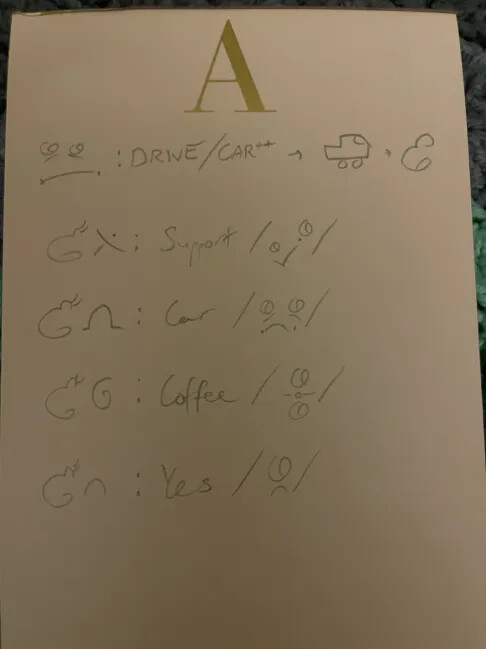 A
: DRIVE/CAR++ →
: Support / /
: Car / /
: Coffee / /
: Yes / /